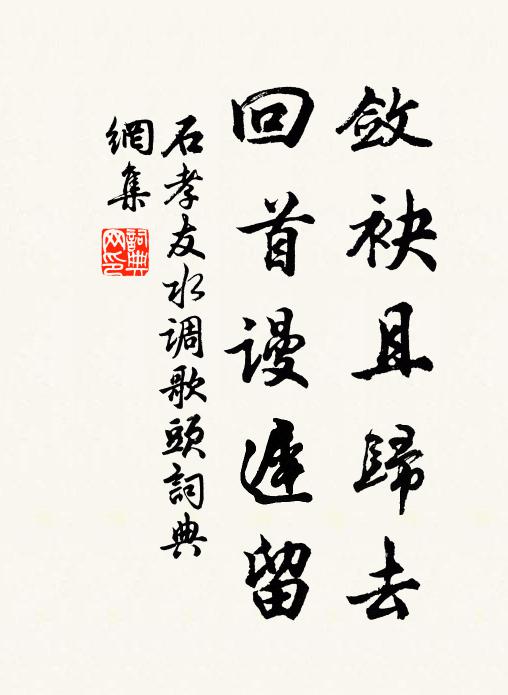 斂袂且歸去
回首謾遲留
石孝友水调歌頭詞典
網集
詞典
网印